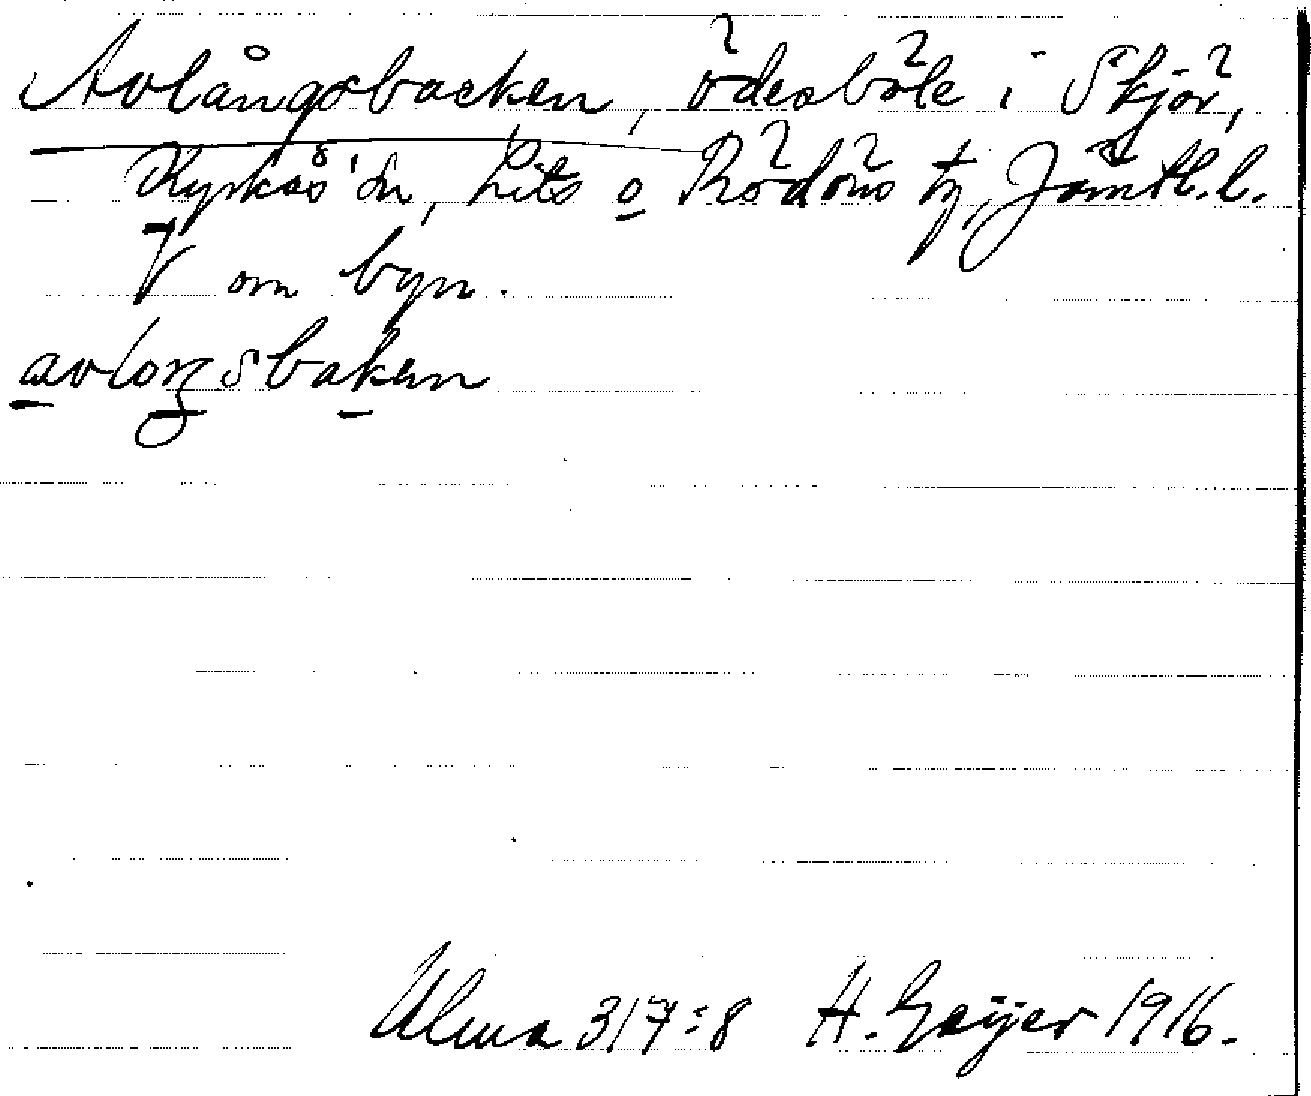 Avlångsbacken, ödesböle i Skjör,
Kyrkås sn, Lits o Rödöns tg, Jämtl.l.
V om byn.
avloŋsbaken
Ulma 317:8 H. Geijer 1916.